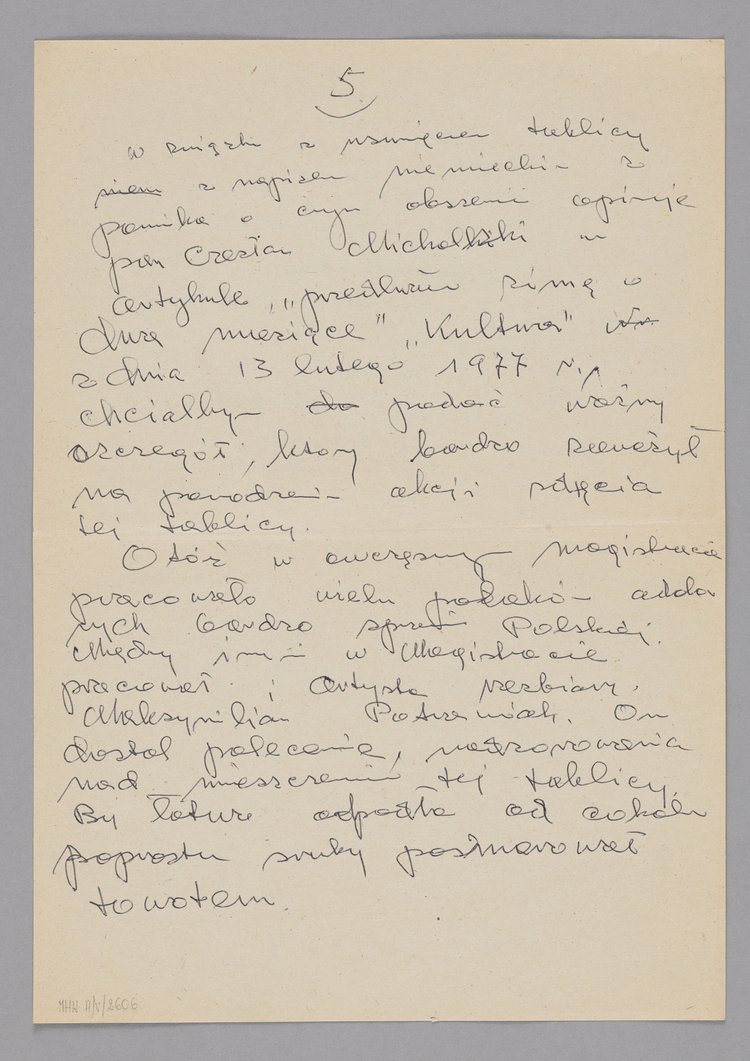 5
w związku z usunięciem tablicy
z napisem niemieckim z
pomnika o czym obszernie opisuje
pan Czesław Michalski w
artykule, "przedłużam zimę o
dwa miesiące" "Kultura"
z dnia 13 lutego 1977 r.,
chciałbym do podać ważny
szczegół, który bardzo zaważył
na powodzeniu akcji zdjęcia
tej tablicy.
Otóż w ówczesnym magistracie
pracowało wielu polaków odda
nych bardzo sprawie Polskiej.
Między innymi w Magistracie
pracował i Artysta rzeźbiarz.
Maksymilian Potrawiak. On
dostał polecenie, nadzorowania
nad umieszczeniem tej tablicy.
By łatwo odpadła od cokołu
poprostu śruby posmarował
towotem.
MHW A/V/2606